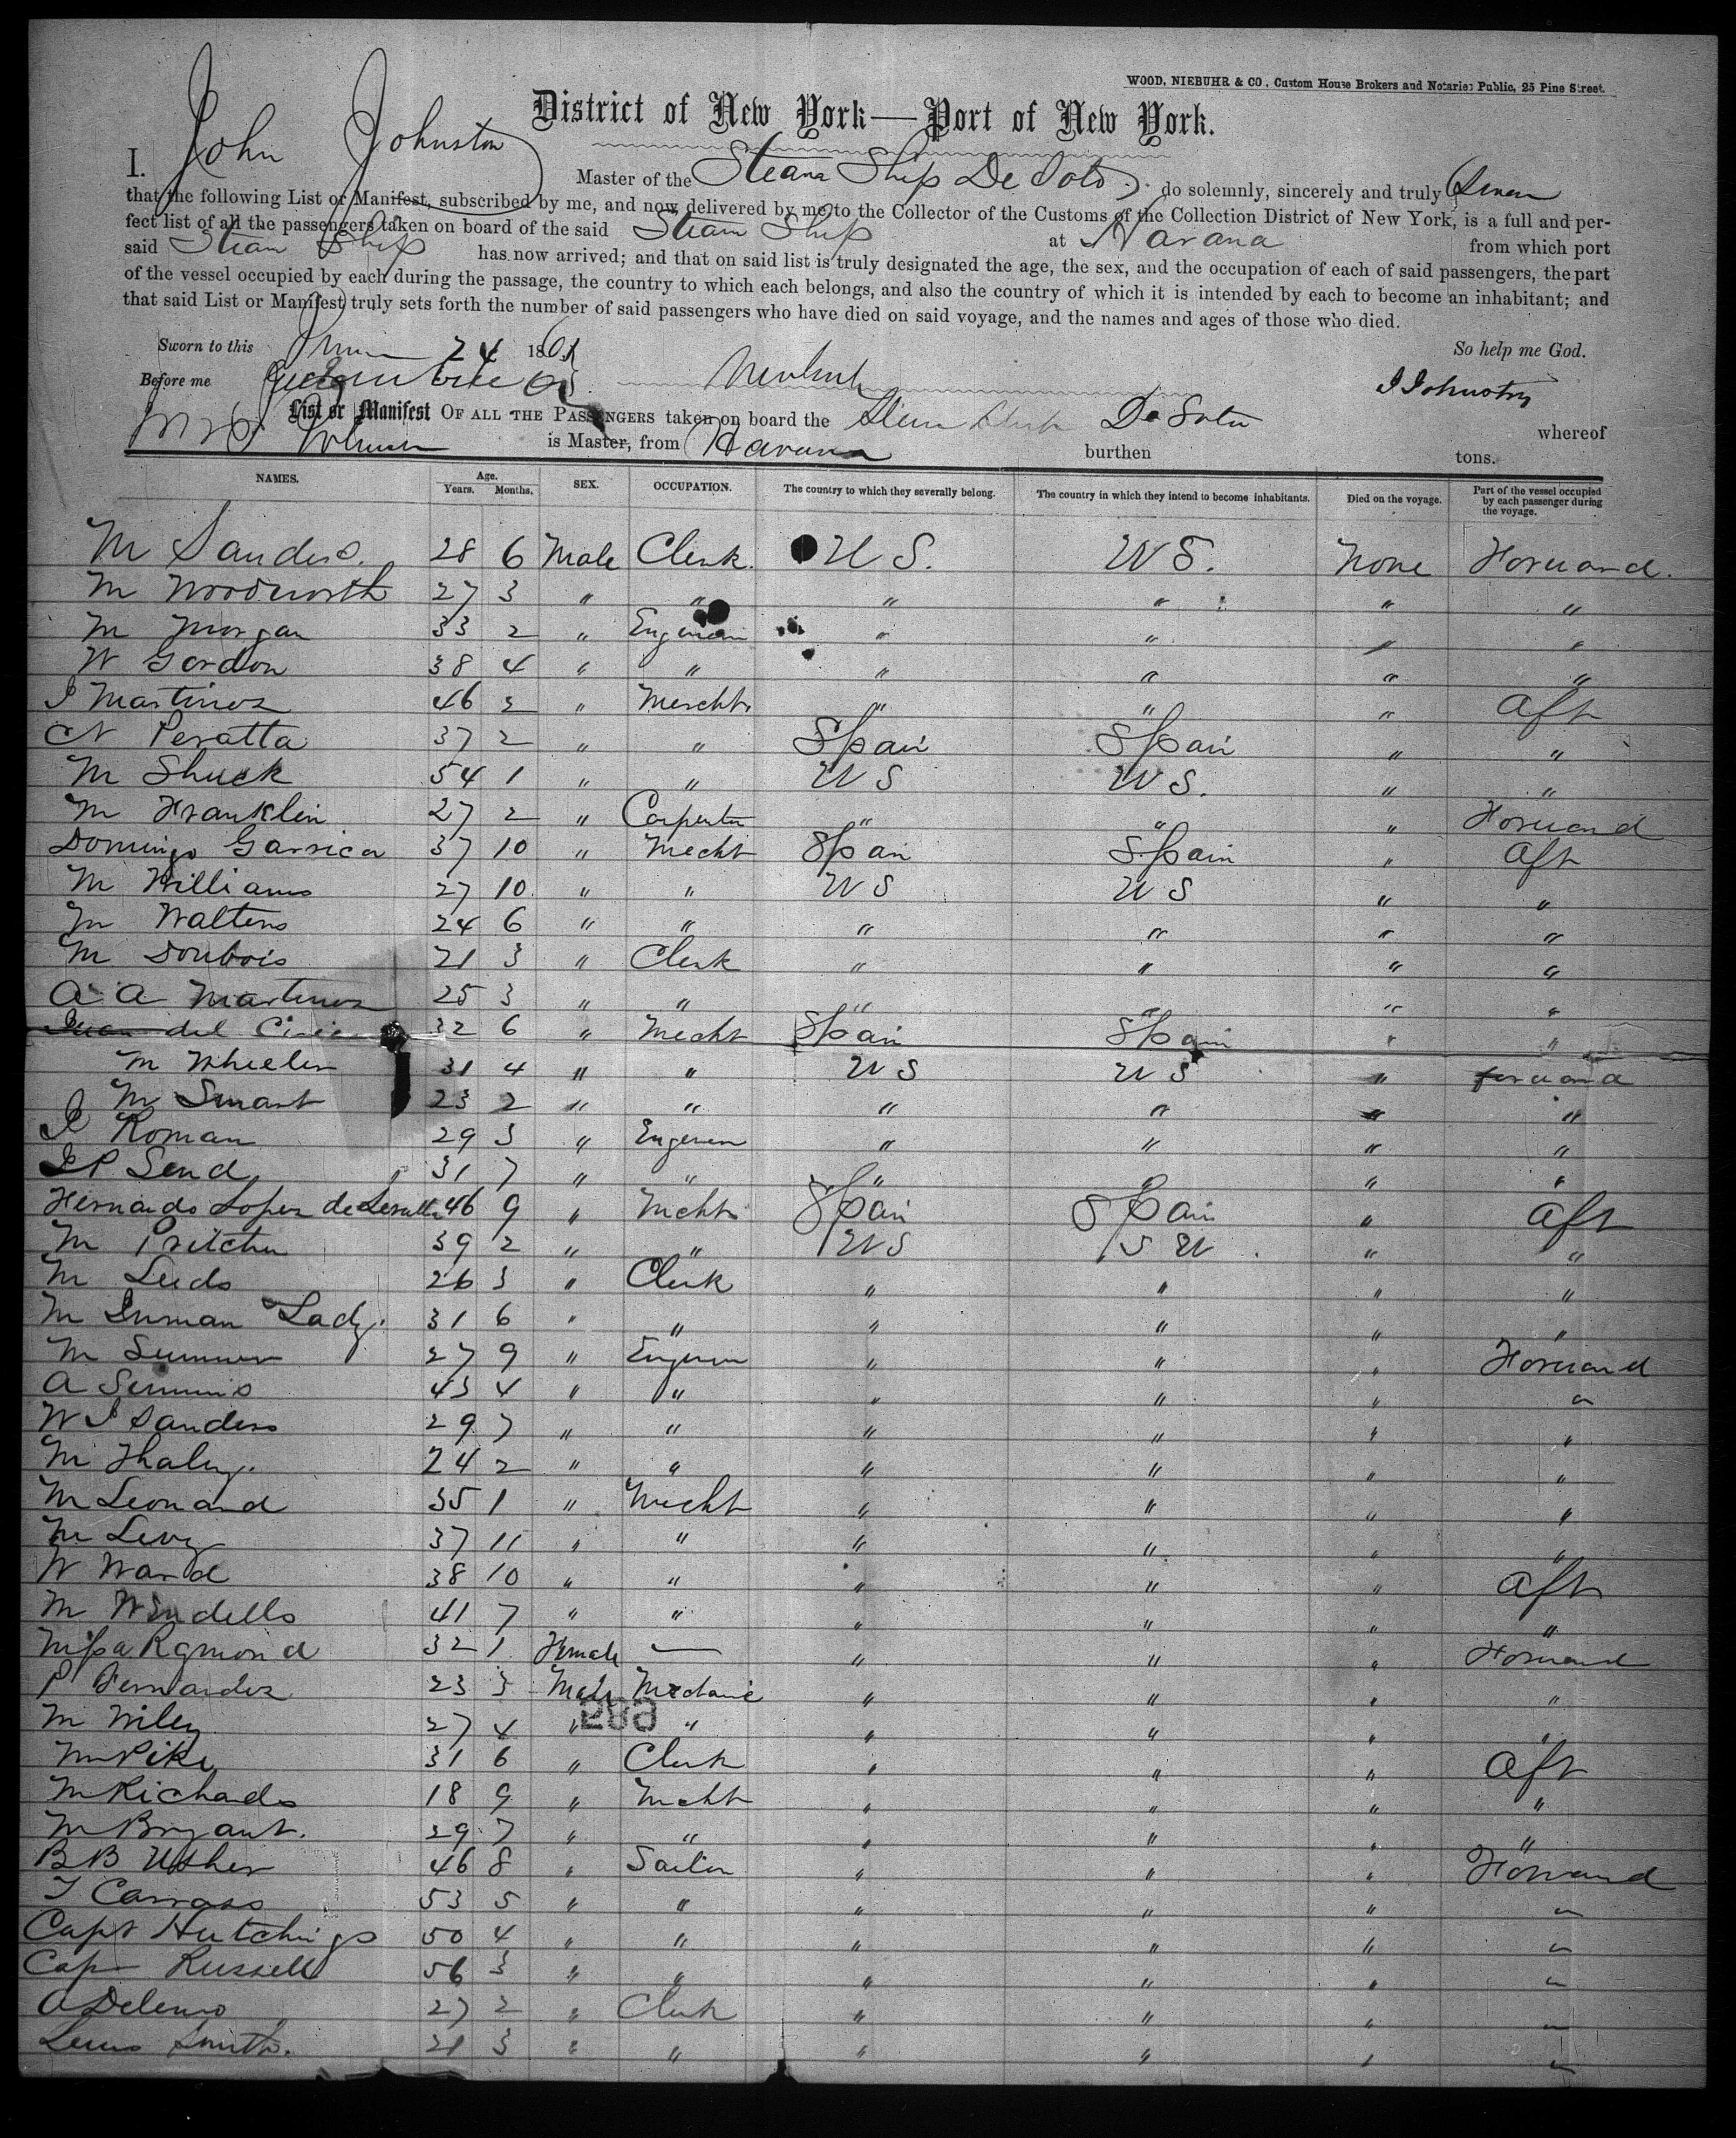 WOOD, NIEBUHR & CO., Custom House Brokers and Notaries Public, 25 Pine Street.
District of New York—Port of New York.
I. John Johnston Master of the Steam Ship De Soto do solemnly, sincerely and truly Swear
that the following List or Manifest, subscribed by me, and now delivered by me to the Collector of the Customs of the Collection District of New York, is a full and per-
fect list of all the passengers taken on board of the said Steam Ship at Havana from which port
said Steam Ship has now arrived; and that on said list is truly designated the age, the sex, and the occupation of each of said passengers, the part
of the vessel occupied by each during the passage, the country to which each belongs, and also the country of which it is intended by each to become an inhabitant; and
that said List or Manifest truly sets forth the number of said passengers who have died on said voyage, and the names and ages of those who died.
Sworn to this 24 186 So help me God.
Before me J Johnston
List or Manifest OF ALL THE PASSENGERS taken on board the Steam Ship De Soto whereof
is Master, from Havana burthen tons.
NAMES. Age. Years. Months. SEX. OCCUPATION. The country to which they severally belong. The country in which they intend to become inhabitants. Died on the voyage. Part of the vessel occupied by each passenger during the voyage.
M Sanders. 28 6 Male Clerk. U S. U S. None Forward.
M Woodworth 27 3 " " " " " "
M Morgan 33 2 " Engineer " " " "
W Gordon 38 4 " " " " " "
J Martinez 46 2 " Mercht. " " " Aft
N Peratta 37 2 " " Spain Spain " "
M Shuck 54 1 " " U S U S. " "
M Franklin 27 2 " Carpenter " " " Forward
Domingo Garrica 37 10 " Mecht Spain Spain " Aft
M Williams 27 10 " " U S U S " "
M Walters 24 6 " " " " " "
M Doubois 21 3 " Clerk " " " "
A A Martinez 25 3 " " " " " "
Juan del 32 6 " Mecht Spain Spain " "
M Wheeler 31 4 " " U S U S " forward
M Smart 23 2 " " " " " "
J Roman 29 3 " Engeneer " " " "
J P Send 31 7 " " " " " "
Hernando Lopez de 46 9 " Mecht Spain Spain " Aft
M Pritcher 39 2 " " U S S U " "
M Leeds 26 3 " Clerk " " " "
M Inman Lady. 31 6 " " " " " "
M Sumner 27 9 " Engeneer " " " Forward
A Semmis 43 4 " " " " " "
W J Sanders 29 7 " " " " " "
M Thaley. 24 2 " " " " " "
M Leonard 35 1 " Mecht " " " "
M Levy 37 11 " " " " " "
W Ward 38 10 " " " " " Aft
M Windells 41 7 " " " " " "
Missa Rymond 32 1 Female — " " " Forward
P Fernandez 23 3 Male Mechanic " " " "
M Wiley 27 4 " " " " " "
M Pike 31 6 " Clerk " " " Aft
M Richards 18 9 " Mecht " " " "
M Bryant. 29 7 " " " " " "
B B Usher 46 8 " Sailor " " " Forward
T Carrass 53 5 " " " " " "
Capt Hutchings 50 4 " " " " " "
Cap Russell 56 3 " " " " " "
A Delemo 27 2 " Clerk " " " "
Louis Smith. 21 3 " " " " " "